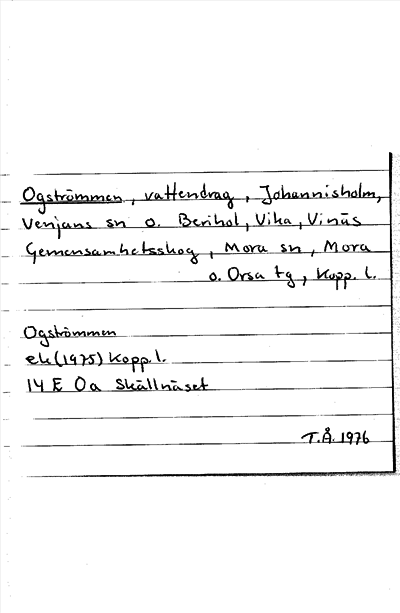 Ogströmmen, vattendrag, Johannisholm,
Venjans sn o. Berihol, Vika, Vinäs
Gemensamhetsskog, Mora sn, Mora
o. Orsa tg, Kopp. l.
Ogströmmen
ek (1975) Kopp. l.
14 E 0a Skällnäset
T.Å. 1976